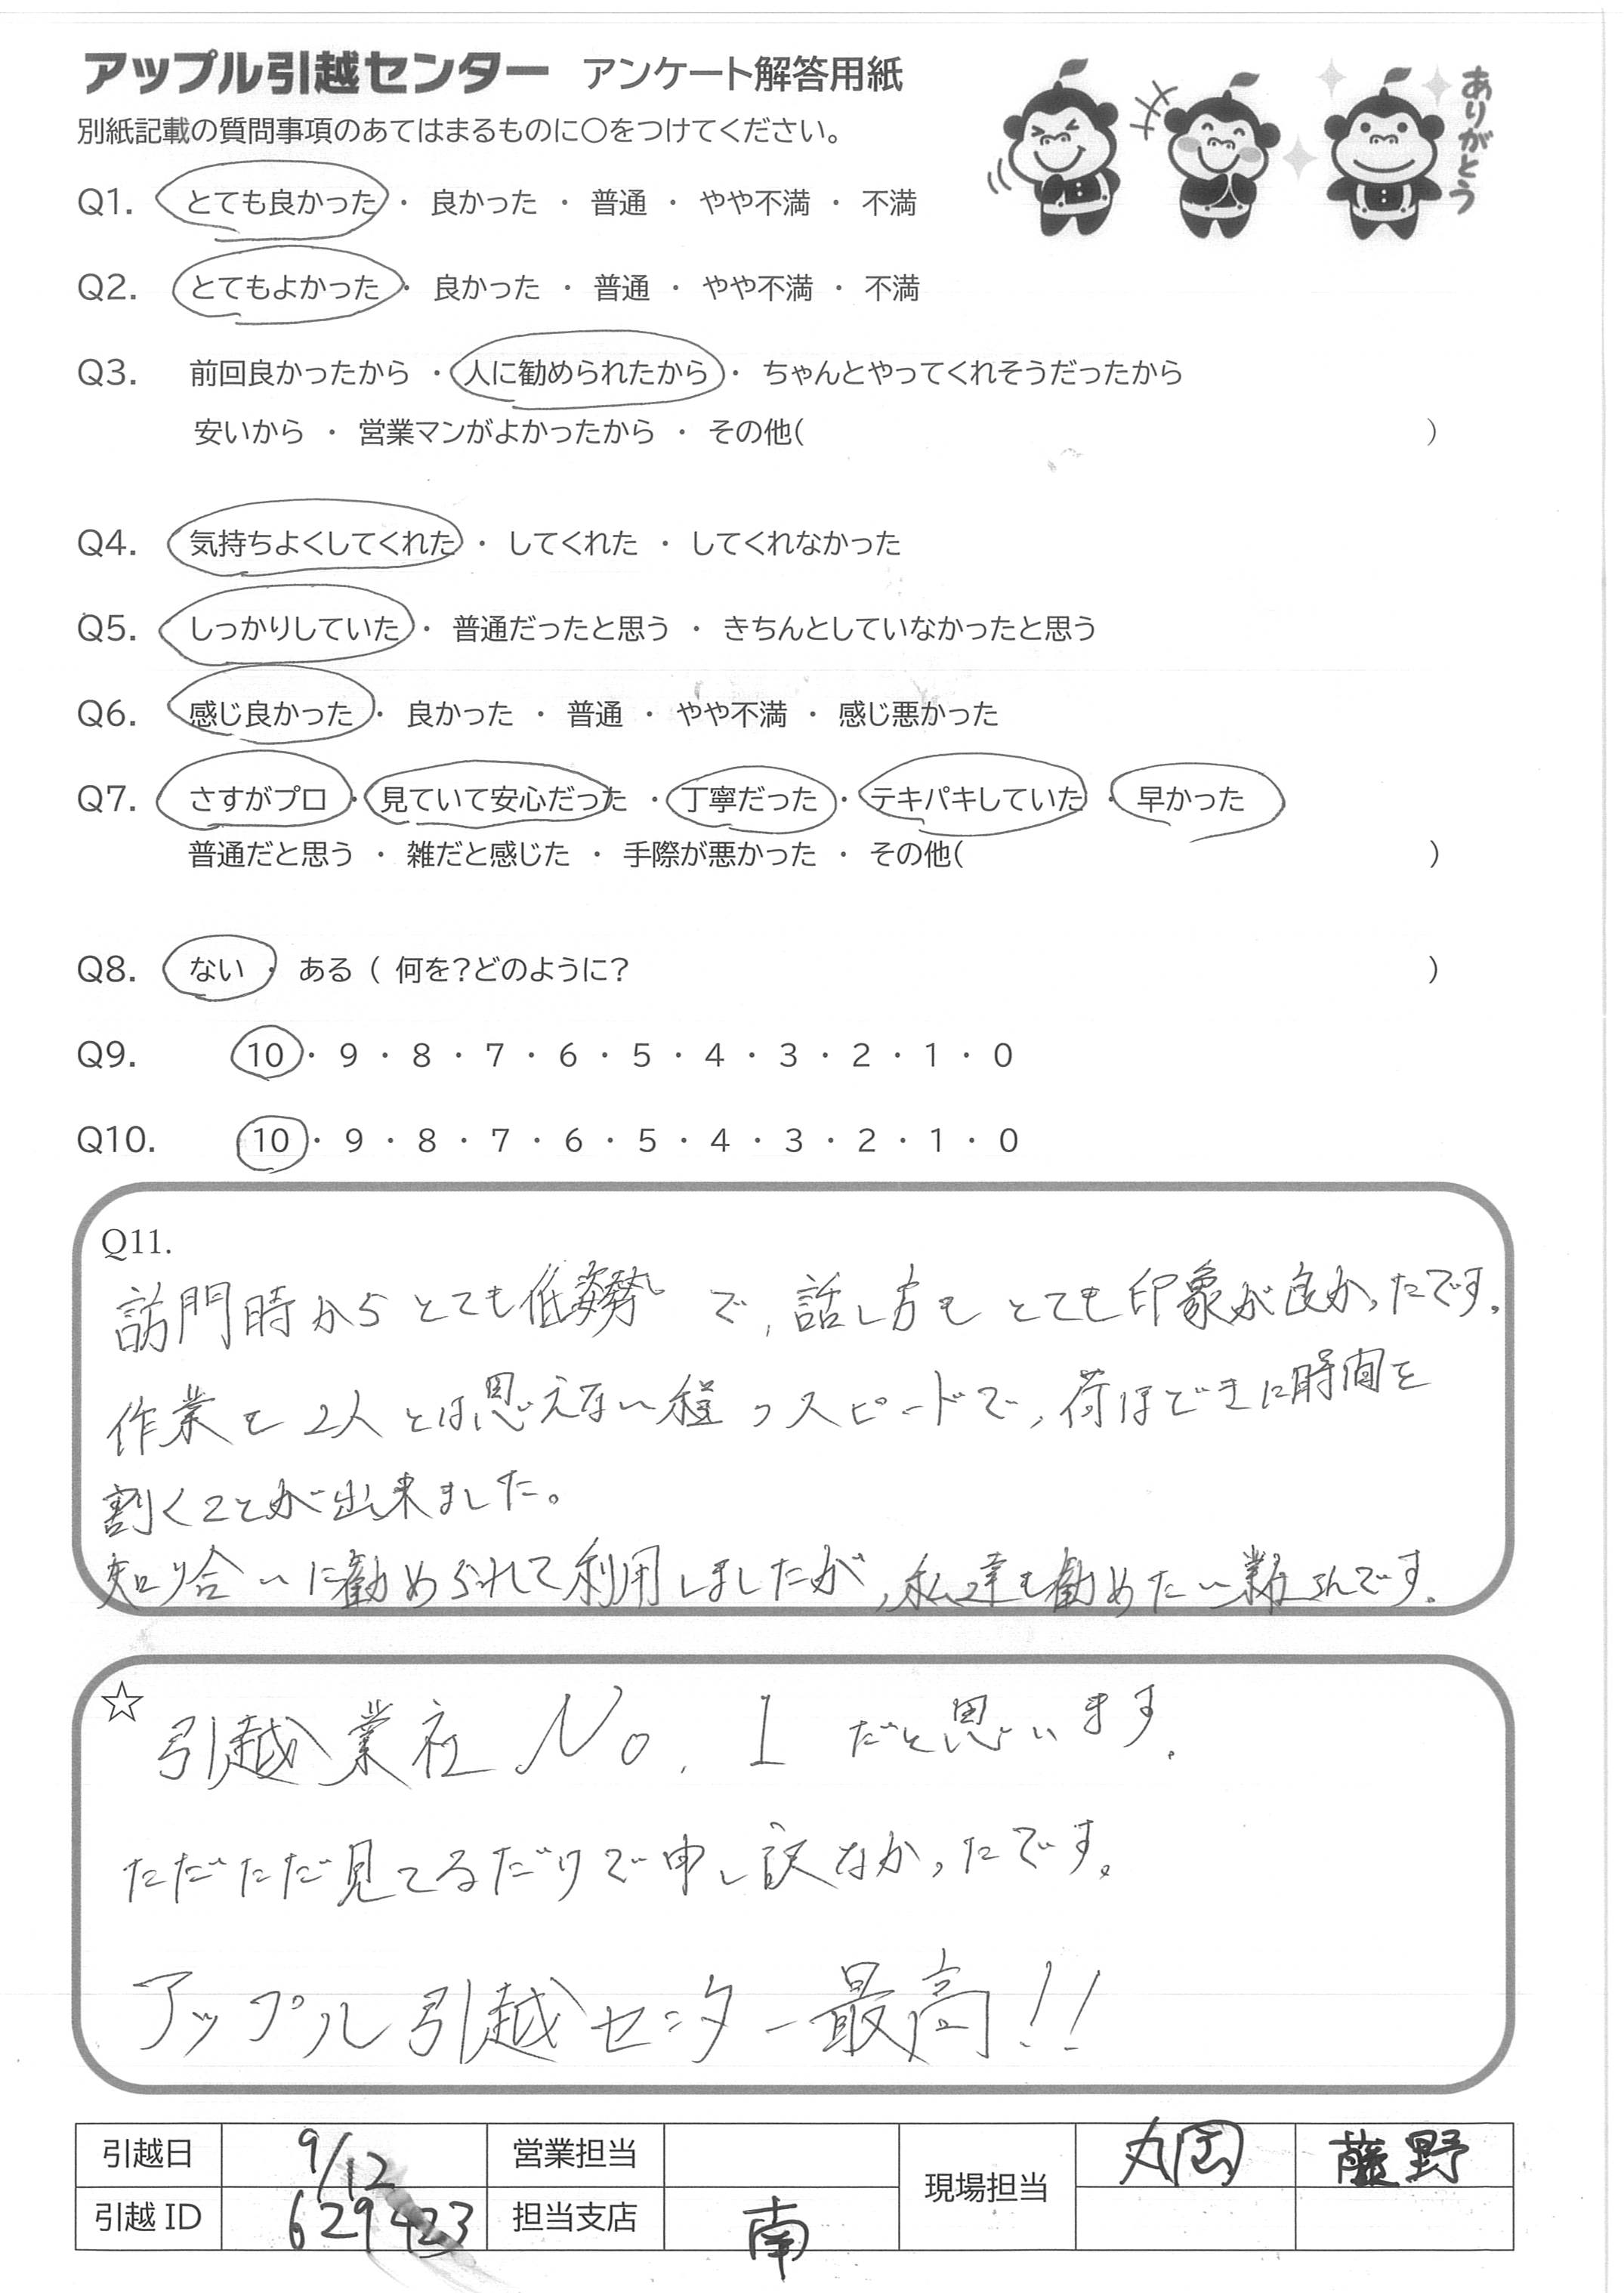 アップル引越センター アンケート解答用紙
ありがとう
別紙記載の質問事項のあてはまるものに〇をつけてください。
Q1. とても良かった ・ 良かった ・ 普通 ・ やや不満 ・ 不満
Q2. とてもよかった ・ 良かった ・ 普通 ・ やや不満 ・ 不満
Q3. 前回良かったから ・ 人に勧められたから ・ ちゃんとやってくれそうだったから
安いから ・ 営業マンがよかったから ・ その他( )
Q4. 気持ちよくしてくれた ・ してくれた ・ してくれなかった
Q5. しっかりしていた ・ 普通だったと思う ・ きちんとしていなかったと思う
Q6. 感じ良かった ・ 良かった ・ 普通 ・ やや不満 ・ 感じ悪かった
Q7. さすがプロ ・ 見ていて安心だった ・ 丁寧だった ・ テキパキしていた ・ 早かった
普通だと思う ・ 雑だと感じた ・ 手際が悪かった ・ その他( )
Q8. ない ・ ある ( 何を?どのように? )
Q9. 10 ・ 9 ・ 8 ・ 7 ・ 6 ・ 5 ・ 4 ・ 3 ・ 2 ・ 1 ・ 0
Q10. 10 ・ 9 ・ 8 ・ 7 ・ 6 ・ 5 ・ 4 ・ 3 ・ 2 ・ 1 ・ 0
Q11.
訪問時からとても低姿勢で、話し方もとても印象が良かったです。
作業も2人とは思えない程のスピードで、荷ほどきに時間を
割くことが出来ました。
知り合いに勧められて利用しましたが、私達も勧めたい業者さんです。
☆ 引越業社 No. 1 だと思います。
ただただ見てるだけで申し訳なかったです。
アップル引越センター最高!!
引越日 9/12 営業担当 現場担当 丸岡 藤野
引越ID 629423 担当支店 南